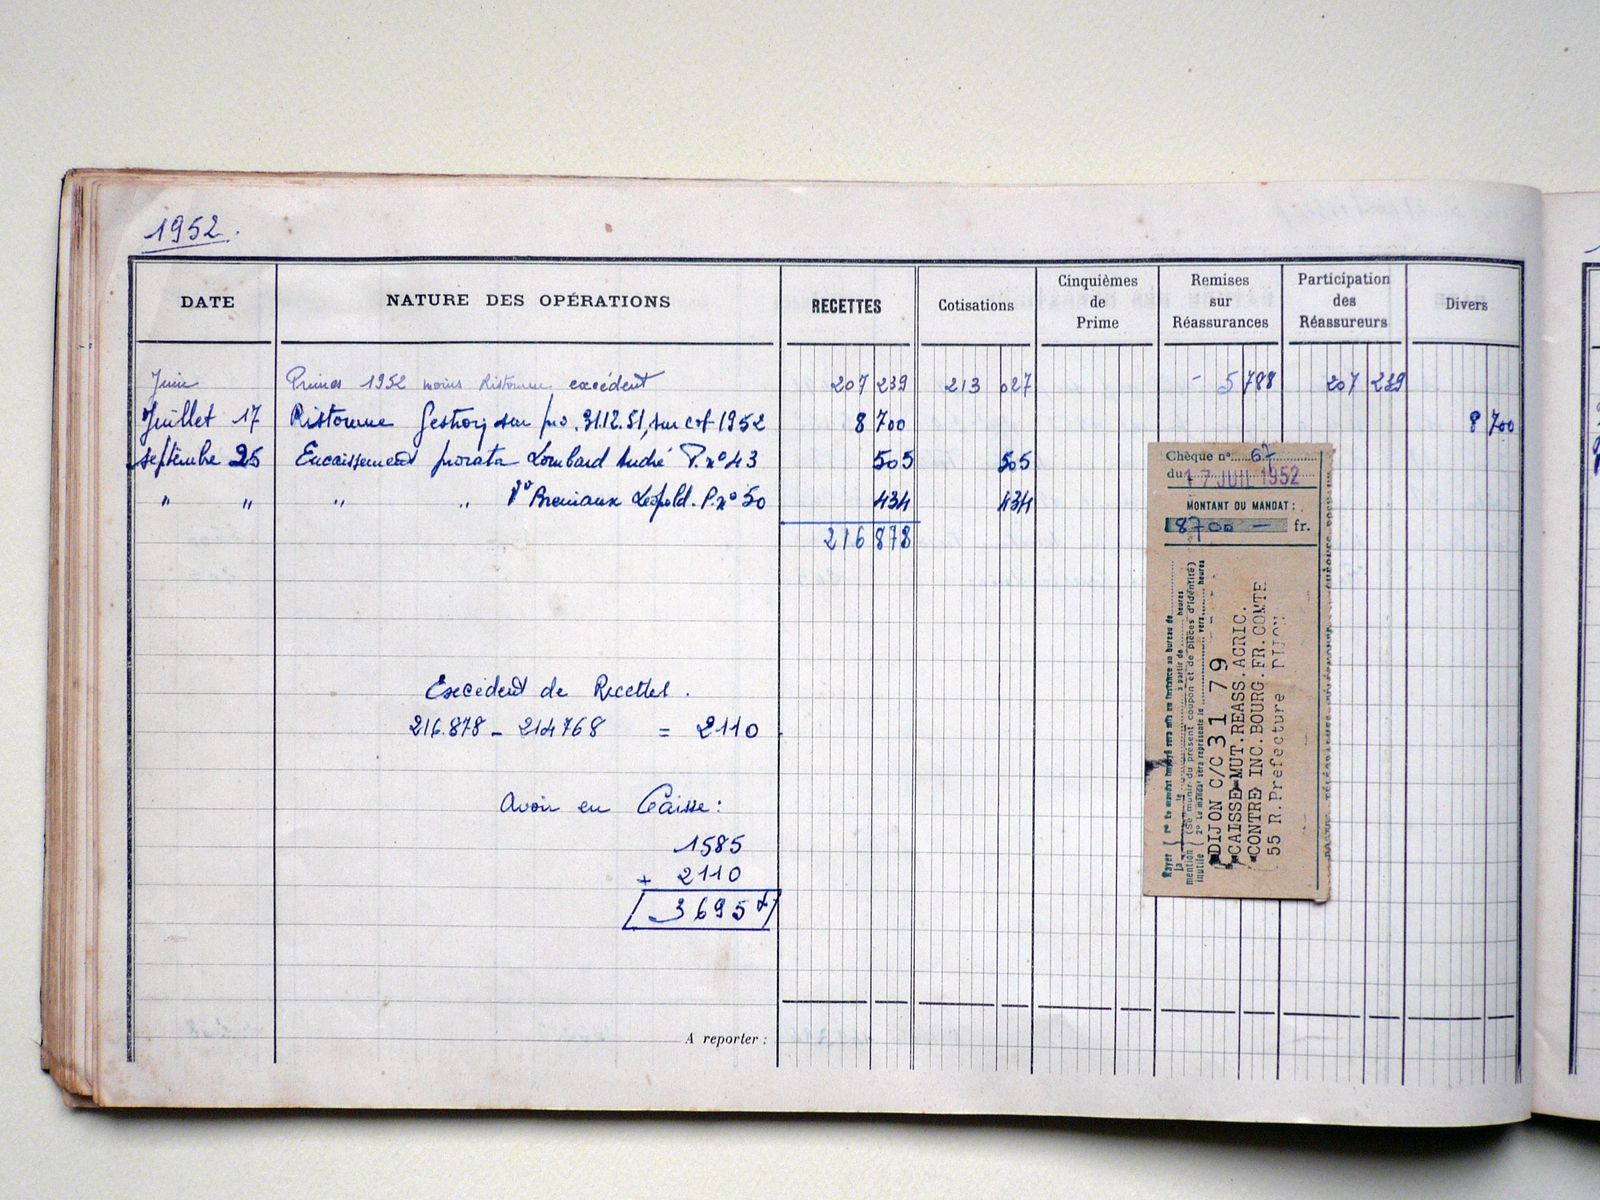 1952.
DATE NATURE DES OPÉRATIONS RECETTES Cotisations Cinquièmes de Prime Remises sur Réassurances Participation des Réassureurs Divers
Juin Primes 1952 moins Ristourne excédent 207 239 213 027 - 5 788 207 239
Juillet 17 Ristourne Gestion sur 31.12.51, sur cot 1952 8 700 8 700
septembre 25 Encaissement prorata Lombard André P. n° 43 505 505
" " " " Léopold. P. n° 50 434 434
216 878
Excédent de Recettes.
216.878 - 214768 = 2110
Avoir en Caisse:
1585
+ 2110
3695
A reporter :
Chèque n° 67
du 17 JUIL 1952
MONTANT DU MANDAT :
8700 — fr.
DIJON C/C 31 79
CAISSE MUT.REASS.AGRIC.
CONTRE INC.BOURG.FR.COMTE
55 R.Préfecture DIJON